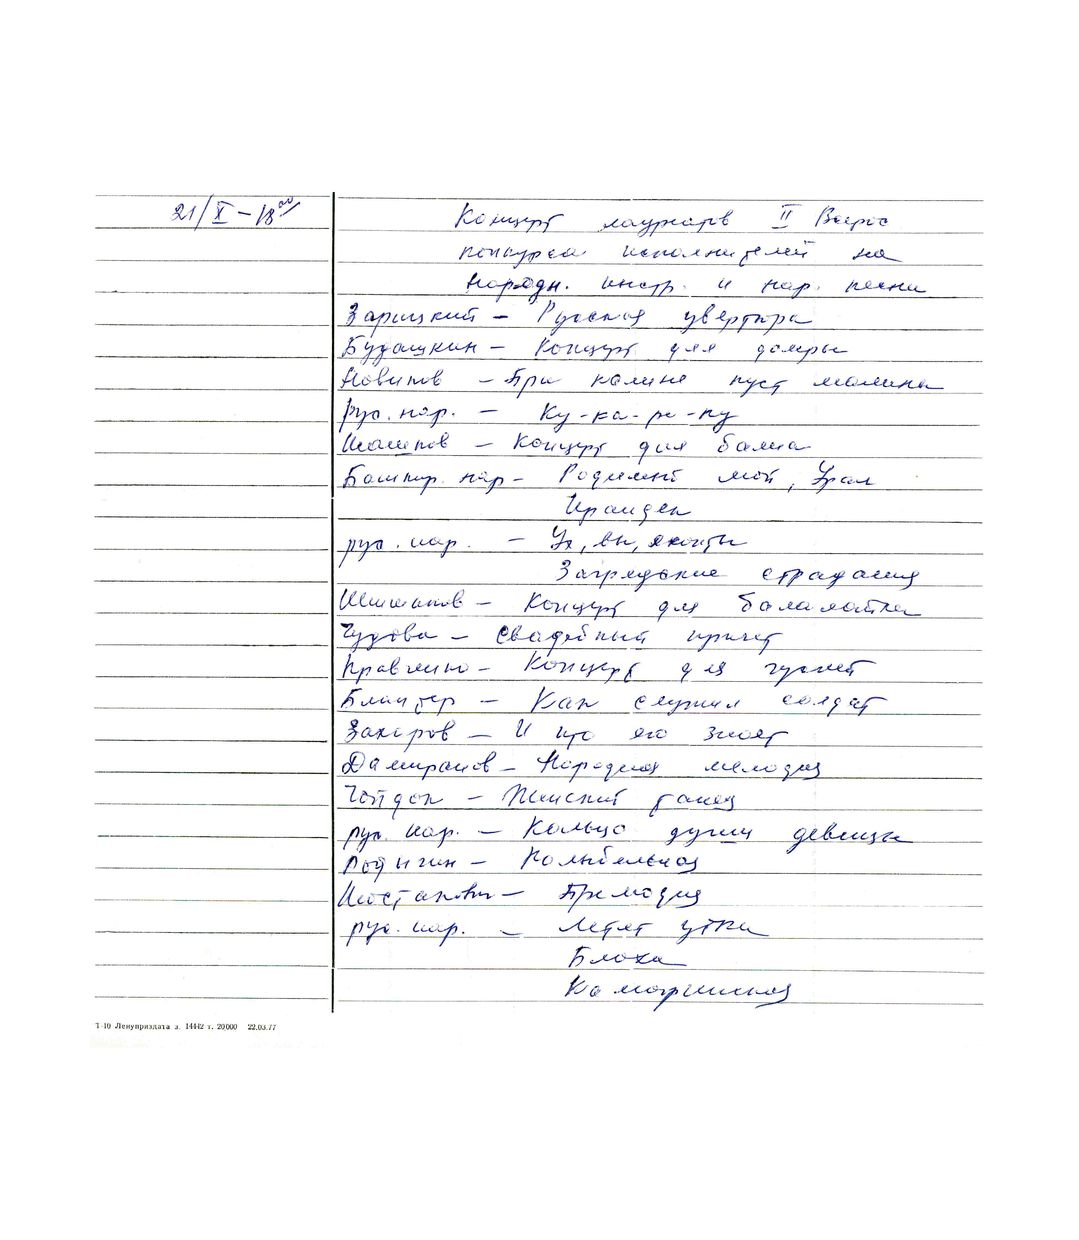 21/X – 18⁰⁰
Концерт лауреатов II Всерос
конкурса исполнителей на
народн. инстр. и нар. песни
Зарицкий – Русская увертюра
Будашкин – Концерт для домры
Новиков – При калине куст малина
рус. нар. – Ку-ка-ре-ку
Шашков – Концерт для баяна
Башкир. нар – Родимый мой, Урал
рус. нар. – Ух, вы,
страдания
Шишаков – Концерт для балалайки
Чудова – Свадебный причет
Кравченко – Концерт для гуслей
Блантер – Как служил солдат
Захаров – И кто его знает
Дамиранов – Народная мелодия
Чойдок – Женский танец
рус. нар. – Кольцо души девицы
Родыгин – Колыбельная
Шостакович –
рус. нар. – Летят утки
Блоха
Камаринская
Т-10 Ленуприздата з. 14442 т. 20000 22.03.77